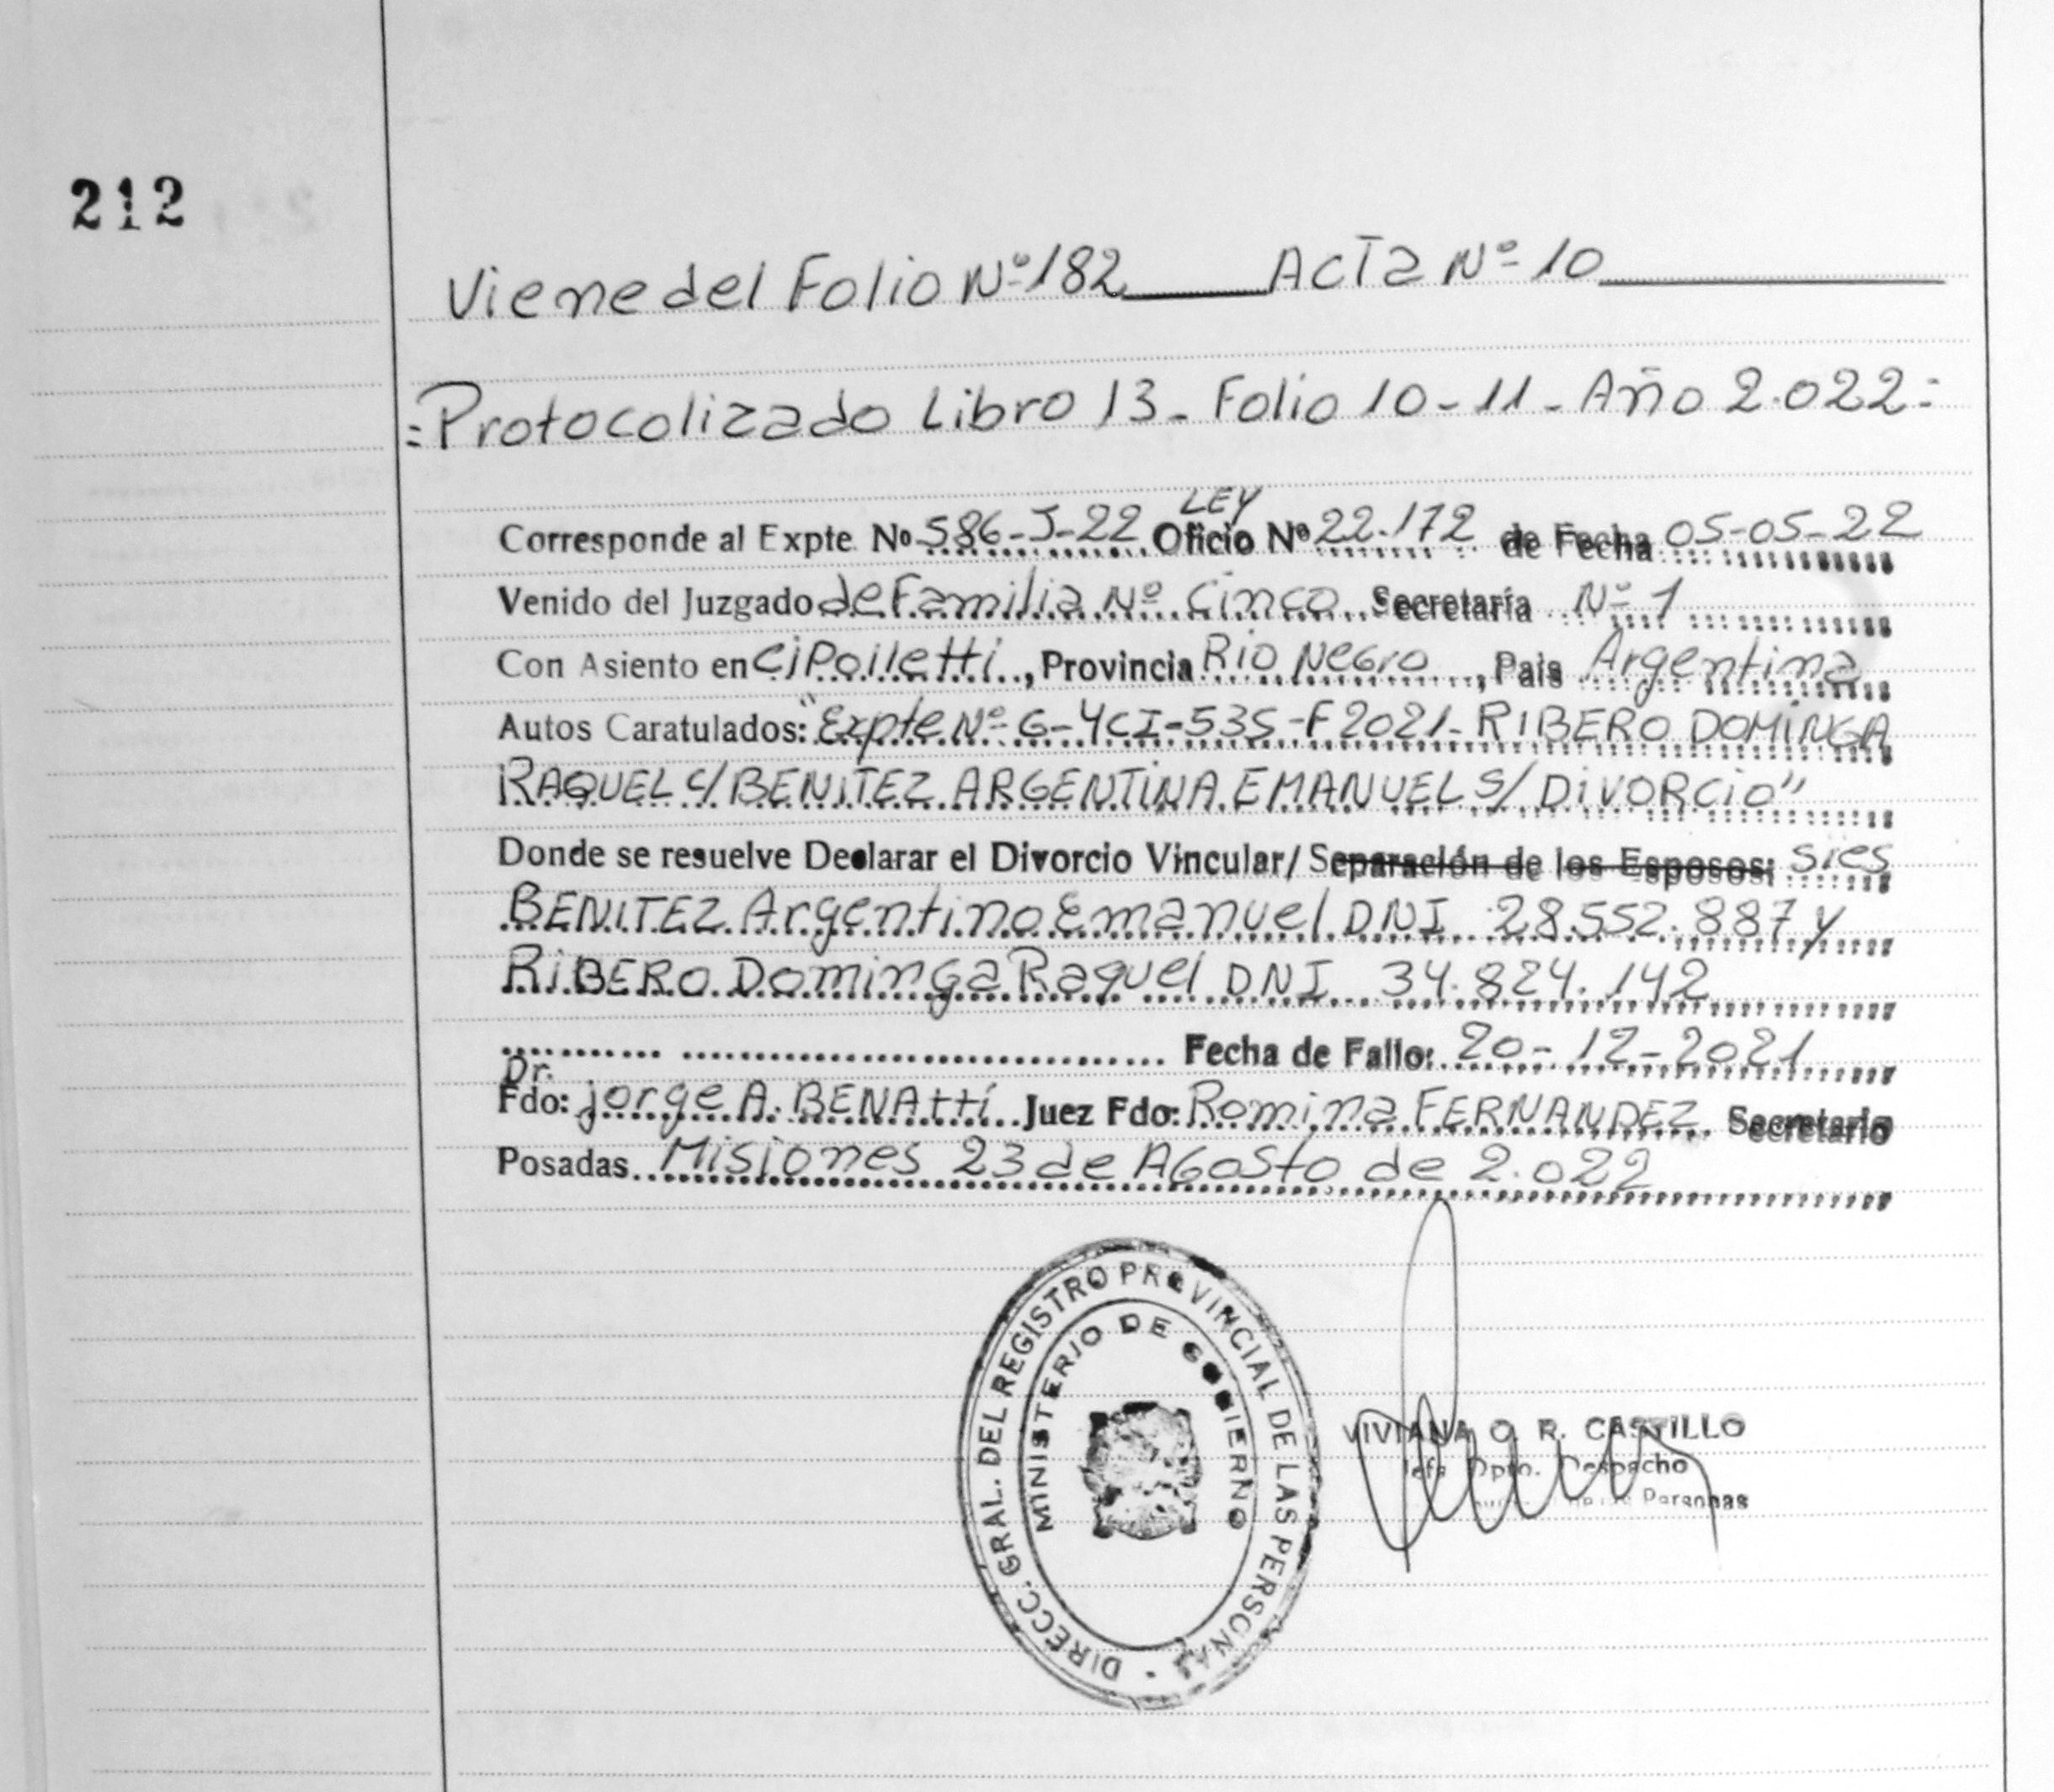 212
Viene del Folio Nº 182 Acta Nº 10
=Protocolizado Libro 13_ Folio 10-11_ Año 2.022=
LEY
Corresponde al Expte. Nº 586-J-22 Oficio Nº 22.172 de Fecha 05-05-22
Venido del Juzgado de Familia Nº Cinco Secretaría Nº 1
Con Asiento en CiPolletti, Provincia Rio Negro, Pais Argentina
Autos Caratulados: "Expte Nº G-4CI-535-F2021- RIBERO DOMINGA
RAQUEL c/ BENITEZ ARGENTINA EMANUEL S/ DIVORCIO"
Donde se resuelve Declarar el Divorcio Vincular/ Separación de los Esposos: sres
BENITEZ Argentino Emanuel DNI 28.552.887 y
RIBERO Dominga Raquel DNI 34.824.142
Fecha de Fallo: 20-12-2021
Dr.
Fdo: jorge A. BENAtti Juez Fdo: Romina FERNANDEZ Secretario
Posadas Misiones 23 de Agosto de 2.022
DIRECC. GRAL. DEL REGISTRO PROVINCIAL DE LAS PERSONAS
MINISTERIO DE GOBIERNO
VIVIANA O. R. CASTILLO
Jefa Dpto. Despacho
Personas